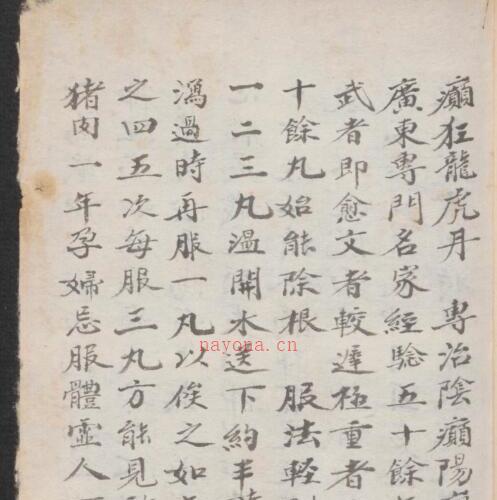 癲狂龍虎丹 專治陰癲陽
廣東專門名家經驗五十餘
武者即愈文者較遲極重者
十餘丸始能除根 服法輕
一二三丸溫開水送下約半
瀉過時再服一丸以俟之如
之四五次每服三丸方能見
猪肉一年孕婦忌服體虛人
nayona.cn